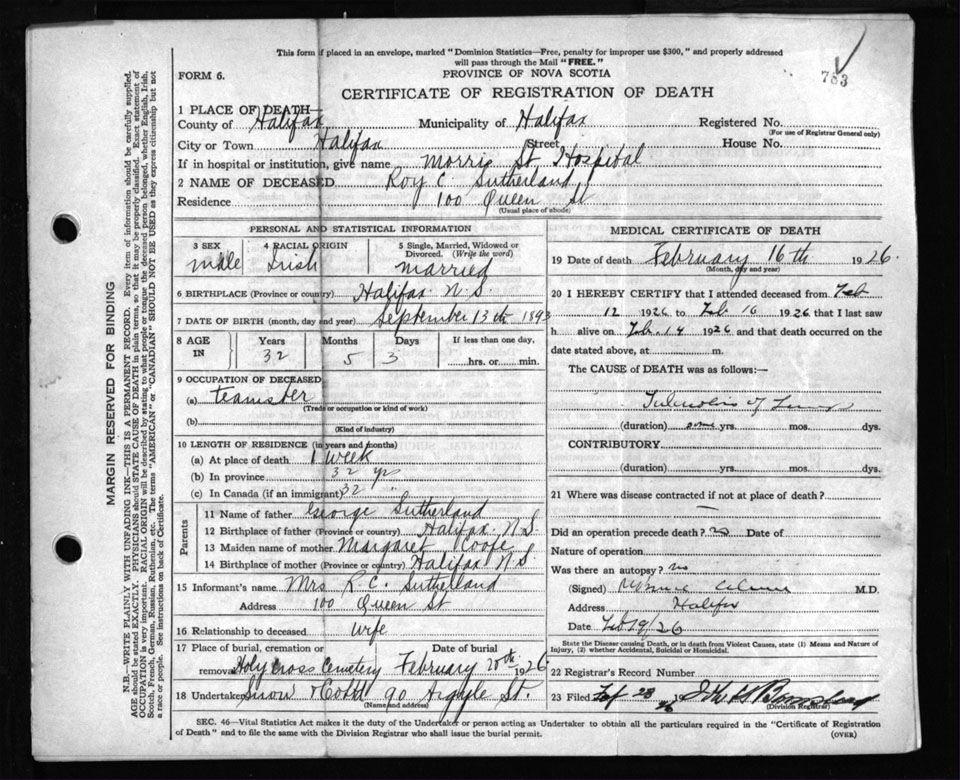 This form if placed in an envelope, marked "Dominion Statistics—Free, penalty for improper use $300," and properly addressed
will pass through the Mail "FREE."
783
FORM 6.
PROVINCE OF NOVA SCOTIA
CERTIFICATE OF REGISTRATION OF DEATH
1 PLACE OF DEATH—
County of Halifax Municipality of Halifax Registered No.
(For use of Registrar General only)
City or Town Halifax Street House No.
If in hospital or institution, give name Morris St Hospital
2 NAME OF DECEASED Roy C. Sutherland
Residence 100 Queen St
(Usual place of abode)
PERSONAL AND STATISTICAL INFORMATION
3 SEX male
4 RACIAL ORIGIN Irish
5 Single, Married, Widowed or Divorced. (Write the word) married
6 BIRTHPLACE (Province or country) Halifax N.S.
7 DATE OF BIRTH (month, day and year) September 13th 1893
8 AGE IN Years Months Days If less than one day,
32 5 3 hrs. or min.
9 OCCUPATION OF DECEASED
(a) teamster
(Trade or occupation or kind of work)
(b)
(Kind of industry)
10 LENGTH OF RESIDENCE (in years and months)
(a) At place of death 1 week
(b) In province 32 yrs
(c) In Canada (if an immigrant) 32 "
Parents
11 Name of father George Sutherland
12 Birthplace of father (Province or country) Halifax N.S.
13 Maiden name of mother Margaret
14 Birthplace of mother (Province or country) Halifax N S
15 Informant's name Mrs R.C. Sutherland
Address 100 Queen St
16 Relationship to deceased wife
17 Place of burial, cremation or removal Date of burial
Holy Cross Cemetery February 20th 1926
18 Undertaker Snow & Co Ltd 90 Argyle St.
(Name and address)
MEDICAL CERTIFICATE OF DEATH
19 Date of death February 16th 1926.
(Month, day and year)
20 I HEREBY CERTIFY that I attended deceased from Feb
12 1926 to Feb 16 1926 that I last saw
h alive on Feb. 14 1926 and that death occurred on the
date stated above, at m.
The CAUSE of DEATH was as follows:—
of Lungs
(duration) some yrs. mos. dys.
CONTRIBUTORY
(duration) yrs. mos. dys.
21 Where was disease contracted if not at place of death?
—
Did an operation precede death? no Date of
Nature of operation
Was there an autopsy? no
(Signed) M.D.
Address Halifax
Date Feb 19/26
State the Disease causing Death, or in death from Violent Causes, state (1) Means and Nature of
Injury, (2) whether Accidental, Suicidal or Homicidal.
22 Registrar's Record Number
23 Filed Feb 23 1926
(Division Registrar)
SEC. 46—Vital Statistics Act makes it the duty of the Undertaker or person acting as Undertaker to obtain all the particulars required in the "Certificate of Registration
of Death" and to file the same with the Division Registrar who shall issue the burial permit. (OVER)
MARGIN RESERVED FOR BINDING
N.B.—WRITE PLAINLY WITH UNFADING INK—THIS IS A PERMANENT RECORD. Every item of information should be carefully supplied.
AGE should be stated EXACTLY. PHYSICIANS should STATE CAUSE OF DEATH in plain terms, so that it may be properly classified. Exact statement of
OCCUPATION is very important. RACIAL ORIGIN will be described by stating to what people or tongue the deceased person belonged, whether English, Irish,
Scotch, French, German, Russian, Ruthenian, etc. The terms "AMERICAN" or "CANADIAN" SHOULD NOT BE USED as they express citizenship but not
a race or people. See instructions on back of Certificate.